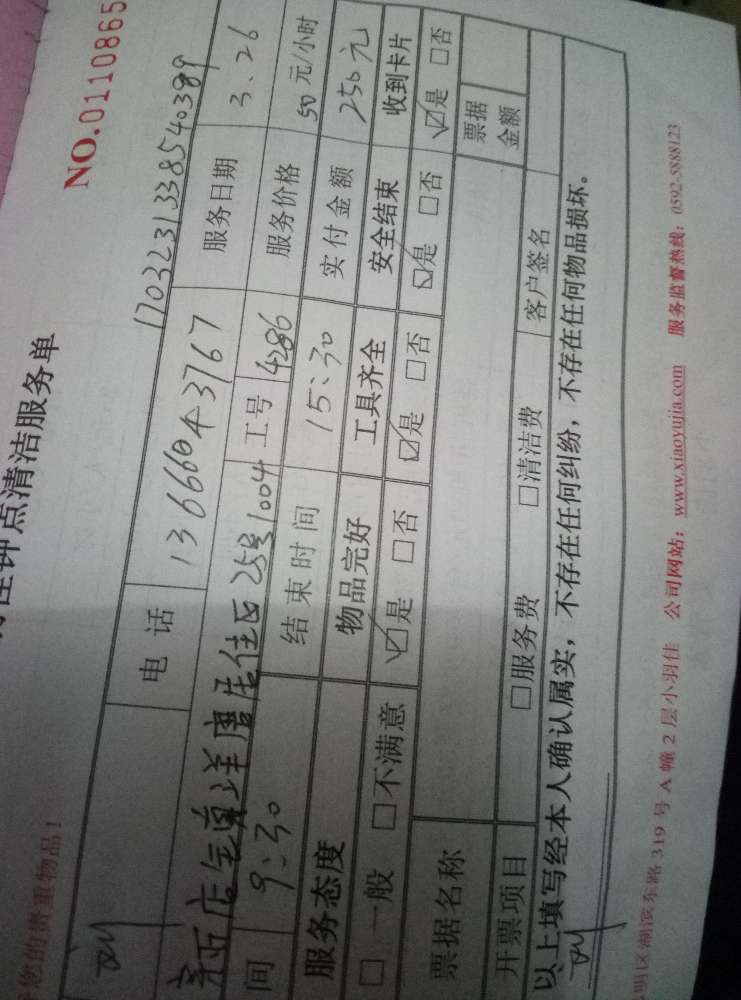 NO.0110865
钟点清洁服务单
您的贵重物品！
1703231338540389
电话 13666043767 服务日期 3、26
25号1004 工号 4286 服务价格 50元/小时
间 9：30 结束时间 15：30 实付金额 250元
服务态度 物品完好 工具齐全 安全结束 收到卡片
□一般 □不满意 ☑是 □否 ☑是 □否 ☑是 □否 ☑是 □否
票据名称 票据金额
开票项目 □服务费 □清洁费 客户签名
以上填写经本人确认属实，不存在任何纠纷，不存在任何物品损坏。
明区湖滨东路 319 号 A 幢 2 层小羽佳 公司网站：www.xiaoyujia.com 服务监督热线：0592-5888123